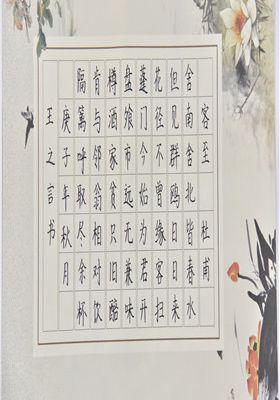 客至 杜甫
舍南舍北皆春水
但见群鸥日日来
花径不曾缘客扫
蓬门今始为君开
盘飧市远无兼味
樽酒家贫只旧醅
肯与邻翁相对饮
隔篱呼取尽余杯
庚子年秋月
王之言书